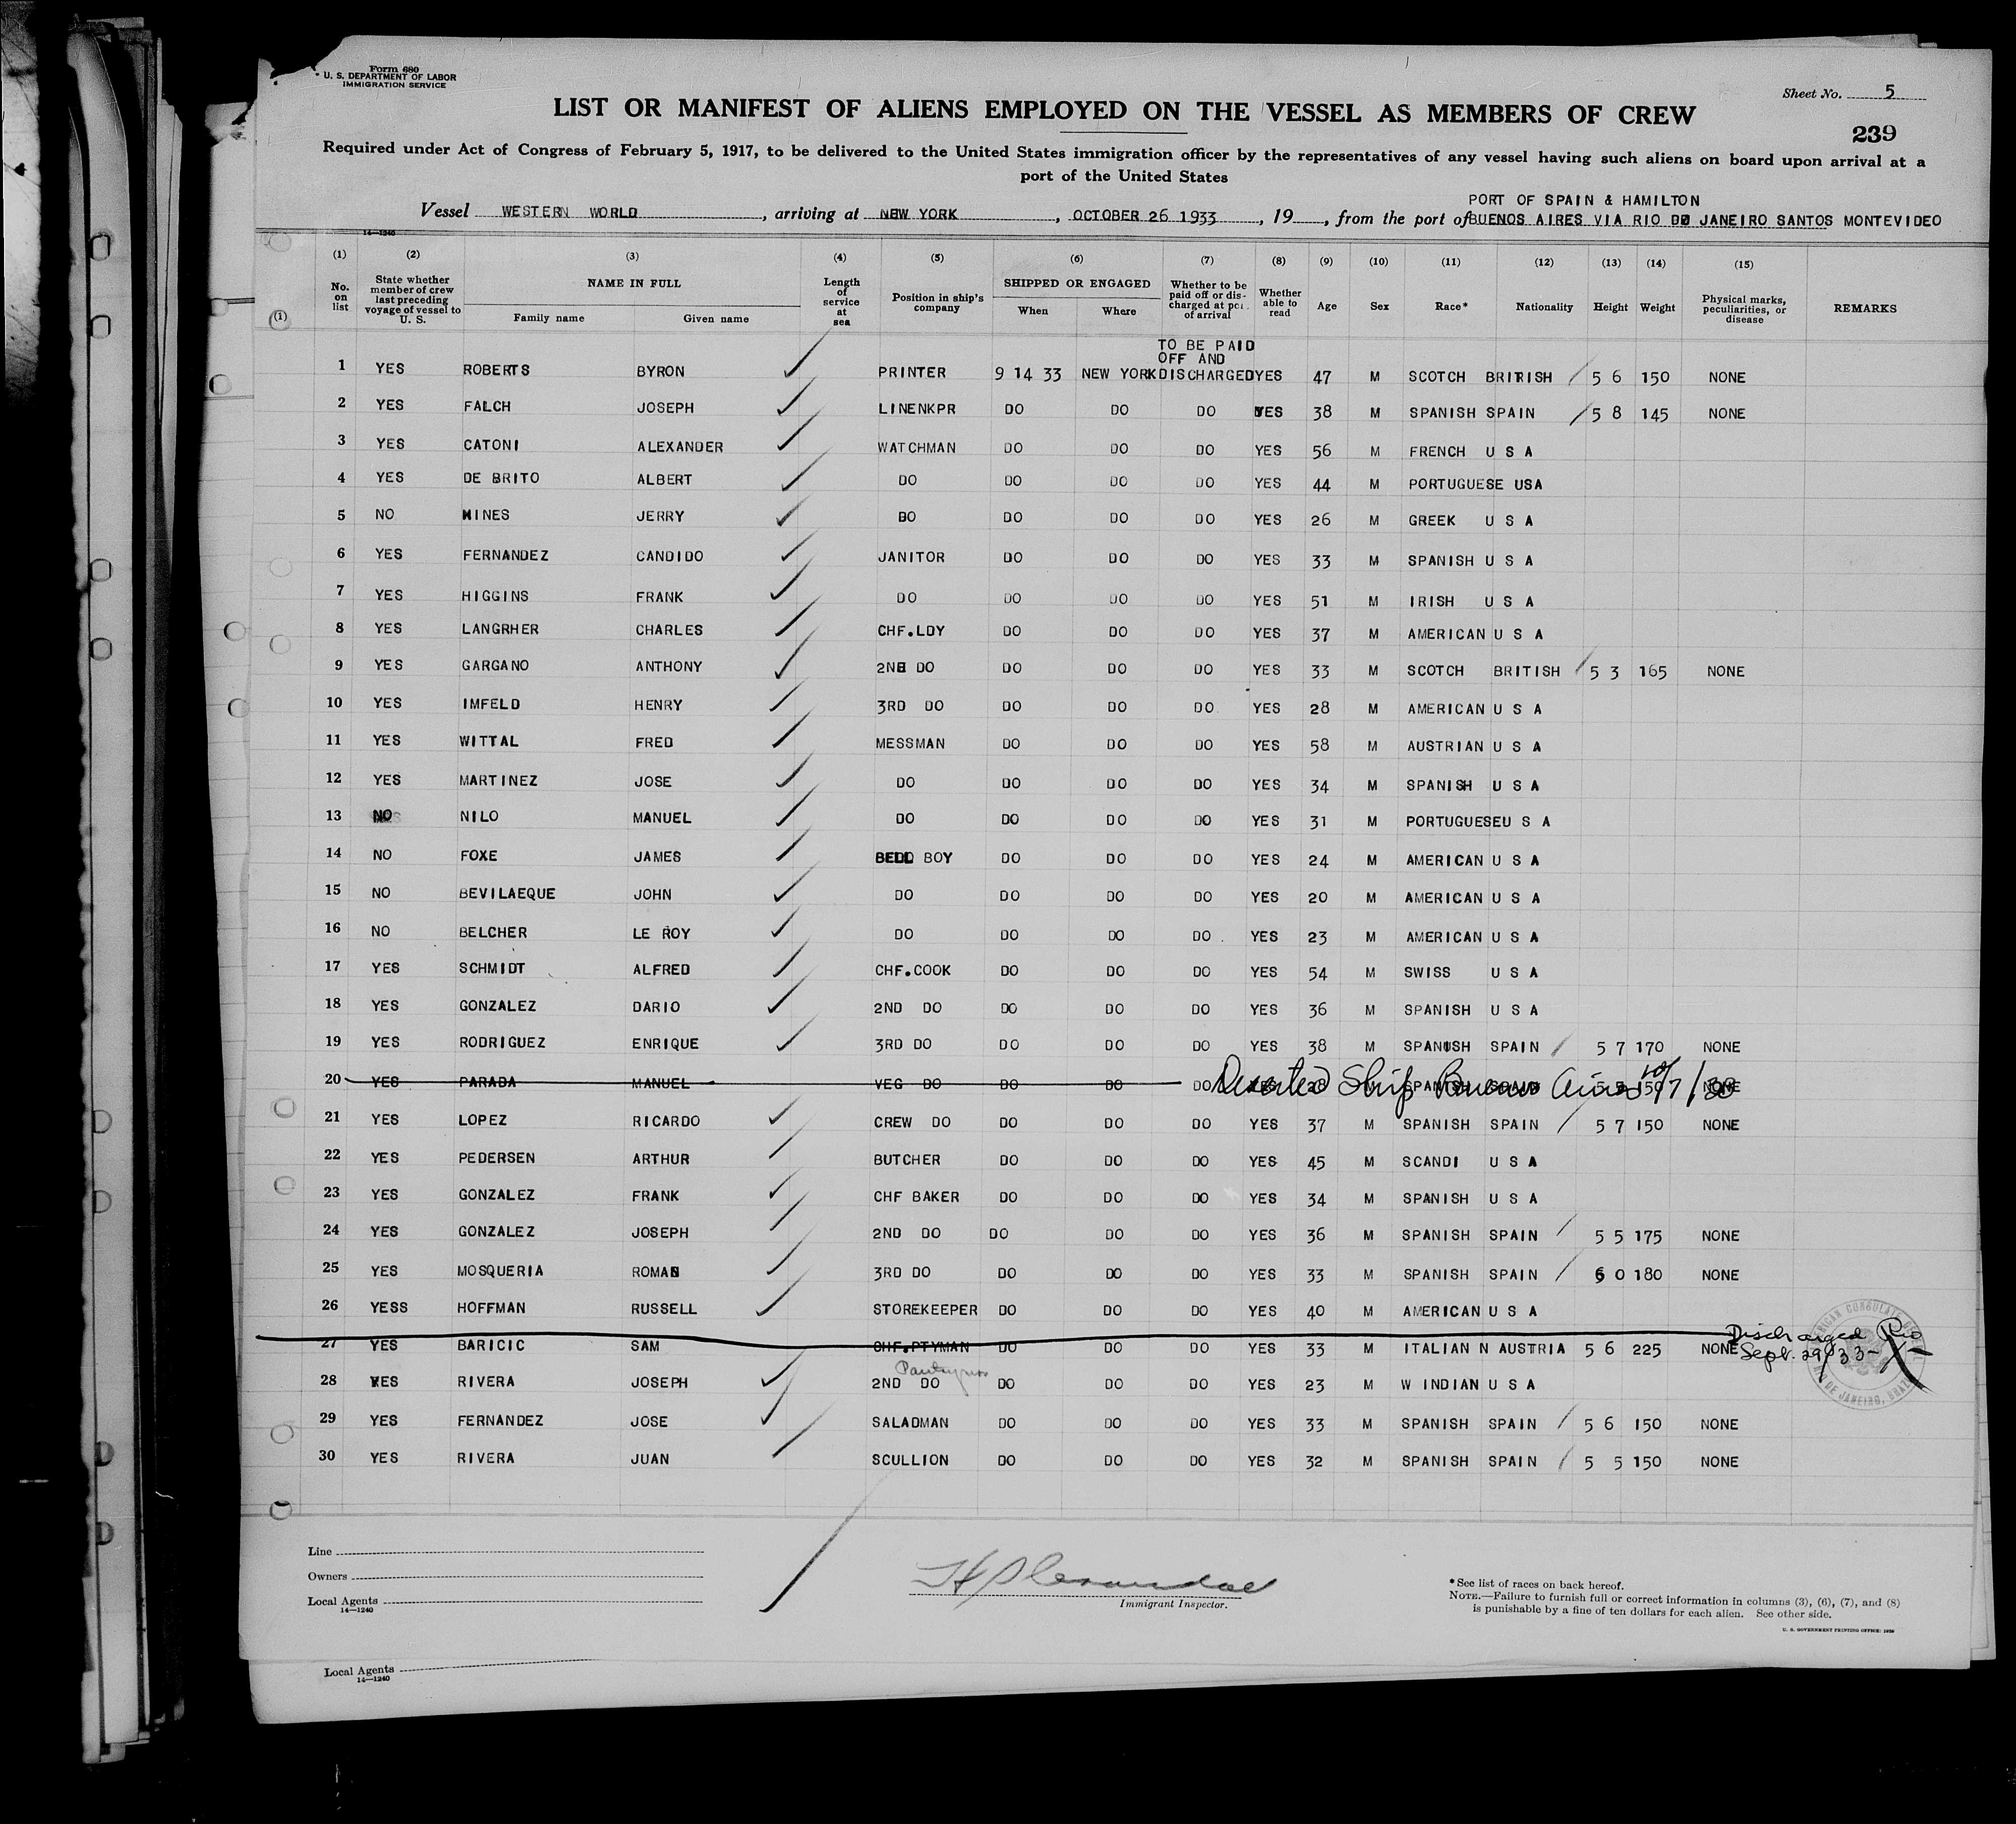 Form 680
U. S. DEPARTMENT OF LABOR
IMMIGRATION SERVICE
Sheet No. 5
LIST OR MANIFEST OF ALIENS EMPLOYED ON THE VESSEL AS MEMBERS OF CREW
239
Required under Act of Congress of February 5, 1917, to be delivered to the United States immigration officer by the representatives of any vessel having such aliens on board upon arrival at a
port of the United States
PORT OF SPAIN & HAMILTON
Vessel WESTERN WORLD, arriving at NEW YORK, OCTOBER 26 1933, 19, from the port of BUENOS AIRES VIA RIO DE JANEIRO SANTOS MONTEVIDEO
14—1240
(1) (2) (3) (4) (5) (6) (7) (8) (9) (10) (11) (12) (13) (14) (15)
No. on list State whether member of crew last preceding voyage of vessel to U. S. NAME IN FULL Family name Given name Length of service at sea Position in ship's company SHIPPED OR ENGAGED When Where Whether to be paid off or discharged at port of arrival Whether able to read Age Sex Race* Nationality Height Weight Physical marks, peculiarities, or disease REMARKS
(1)
TO BE PAID
OFF AND
1 YES ROBERTS BYRON PRINTER 9 14 33 NEW YORK DISCHARGED YES 47 M SCOTCH BRITISH 5 6 150 NONE
2 YES FALCH JOSEPH LINENKPR DO DO DO YES 38 M SPANISH SPAIN 5 8 145 NONE
3 YES CATONI ALEXANDER WATCHMAN DO DO DO YES 56 M FRENCH U S A
4 YES DE BRITO ALBERT DO DO DO DO YES 44 M PORTUGUESE USA
5 NO MINES JERRY DO DO DO DO YES 26 M GREEK U S A
6 YES FERNANDEZ CANDIDO JANITOR DO DO DO YES 33 M SPANISH U S A
7 YES HIGGINS FRANK DO DO DO DO YES 51 M IRISH U S A
8 YES LANGRHER CHARLES CHF.LDY DO DO DO YES 37 M AMERICAN U S A
9 YES GARGANO ANTHONY 2ND DO DO DO DO YES 33 M SCOTCH BRITISH 5 3 165 NONE
10 YES IMFELD HENRY 3RD DO DO DO DO YES 28 M AMERICAN U S A
11 YES WITTAL FRED MESSMAN DO DO DO YES 58 M AUSTRIAN U S A
12 YES MARTINEZ JOSE DO DO DO DO YES 34 M SPANISH U S A
13 NO NILO MANUEL DO DO DO DO YES 31 M PORTUGUESE U S A
14 NO FOXE JAMES BELL BOY DO DO DO YES 24 M AMERICAN U S A
15 NO BEVILAEQUE JOHN DO DO DO DO YES 20 M AMERICAN U S A
16 NO BELCHER LE ROY DO DO DO DO YES 23 M AMERICAN U S A
17 YES SCHMIDT ALFRED CHF.COOK DO DO DO YES 54 M SWISS U S A
18 YES GONZALEZ DARIO 2ND DO DO DO DO YES 36 M SPANISH U S A
19 YES RODRIGUEZ ENRIQUE 3RD DO DO DO DO YES 38 M SPANUSH SPAIN 5 7 170 NONE
20 YES PARADA MANUEL VEG DO DO DO DO Deserted Ship Buenos Aires 10/7/33 SPANISH SPAIN 5 5 150 NONE
21 YES LOPEZ RICARDO CREW DO DO DO DO YES 37 M SPANISH SPAIN 5 7 150 NONE
22 YES PEDERSEN ARTHUR BUTCHER DO DO DO YES 45 M SCANDI U S A
23 YES GONZALEZ FRANK CHF BAKER DO DO DO YES 34 M SPANISH U S A
24 YES GONZALEZ JOSEPH 2ND DO DO DO DO YES 36 M SPANISH SPAIN 5 5 175 NONE
25 YES MOSQUERIA ROMAN 3RD DO DO DO DO YES 33 M SPANISH SPAIN 6 0 180 NONE
26 YESS HOFFMAN RUSSELL STOREKEEPER DO DO DO YES 40 M AMERICAN U S A
27 YES BARICIC SAM CHF.PTYMAN DO DO DO YES 33 M ITALIAN N AUSTRIA 5 6 225 NONE Discharged Rio Sept. 29/33
28 YES RIVERA JOSEPH 2ND DO DO DO DO YES 23 M W INDIAN U S A
29 YES FERNANDEZ JOSE SALADMAN DO DO DO YES 33 M SPANISH SPAIN 5 6 150 NONE
30 YES RIVERA JUAN SCULLION DO DO DO YES 32 M SPANISH SPAIN 5 5 150 NONE
Line
Owners
Local Agents
14—1240
Immigrant Inspector.
*See list of races on back hereof.
NOTE.—Failure to furnish full or correct information in columns (3), (6), (7), and (8)
is punishable by a fine of ten dollars for each alien. See other side.
U. S. GOVERNMENT PRINTING OFFICE: 1929
Local Agents
14—1240